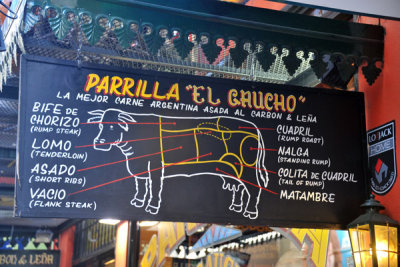 PARRILLA "EL GAUCHO"
LA MEJOR CARNE ARGENTINA ASADA AL CARBON & LEÑA
BIFE DE
CHORIZO
(RUMP STEAK)
LOMO
(TENDERLOIN)
ASADO
(SHORT RIBS)
VACIO
(FLANK STEAK)
CUADRIL
(RUMP ROAST)
NALGA
(STANDING RUMP)
COLITA DE CUADRIL
(TAIL OF RUMP)
MATAMBRE
JACK
HOME
& LEÑA